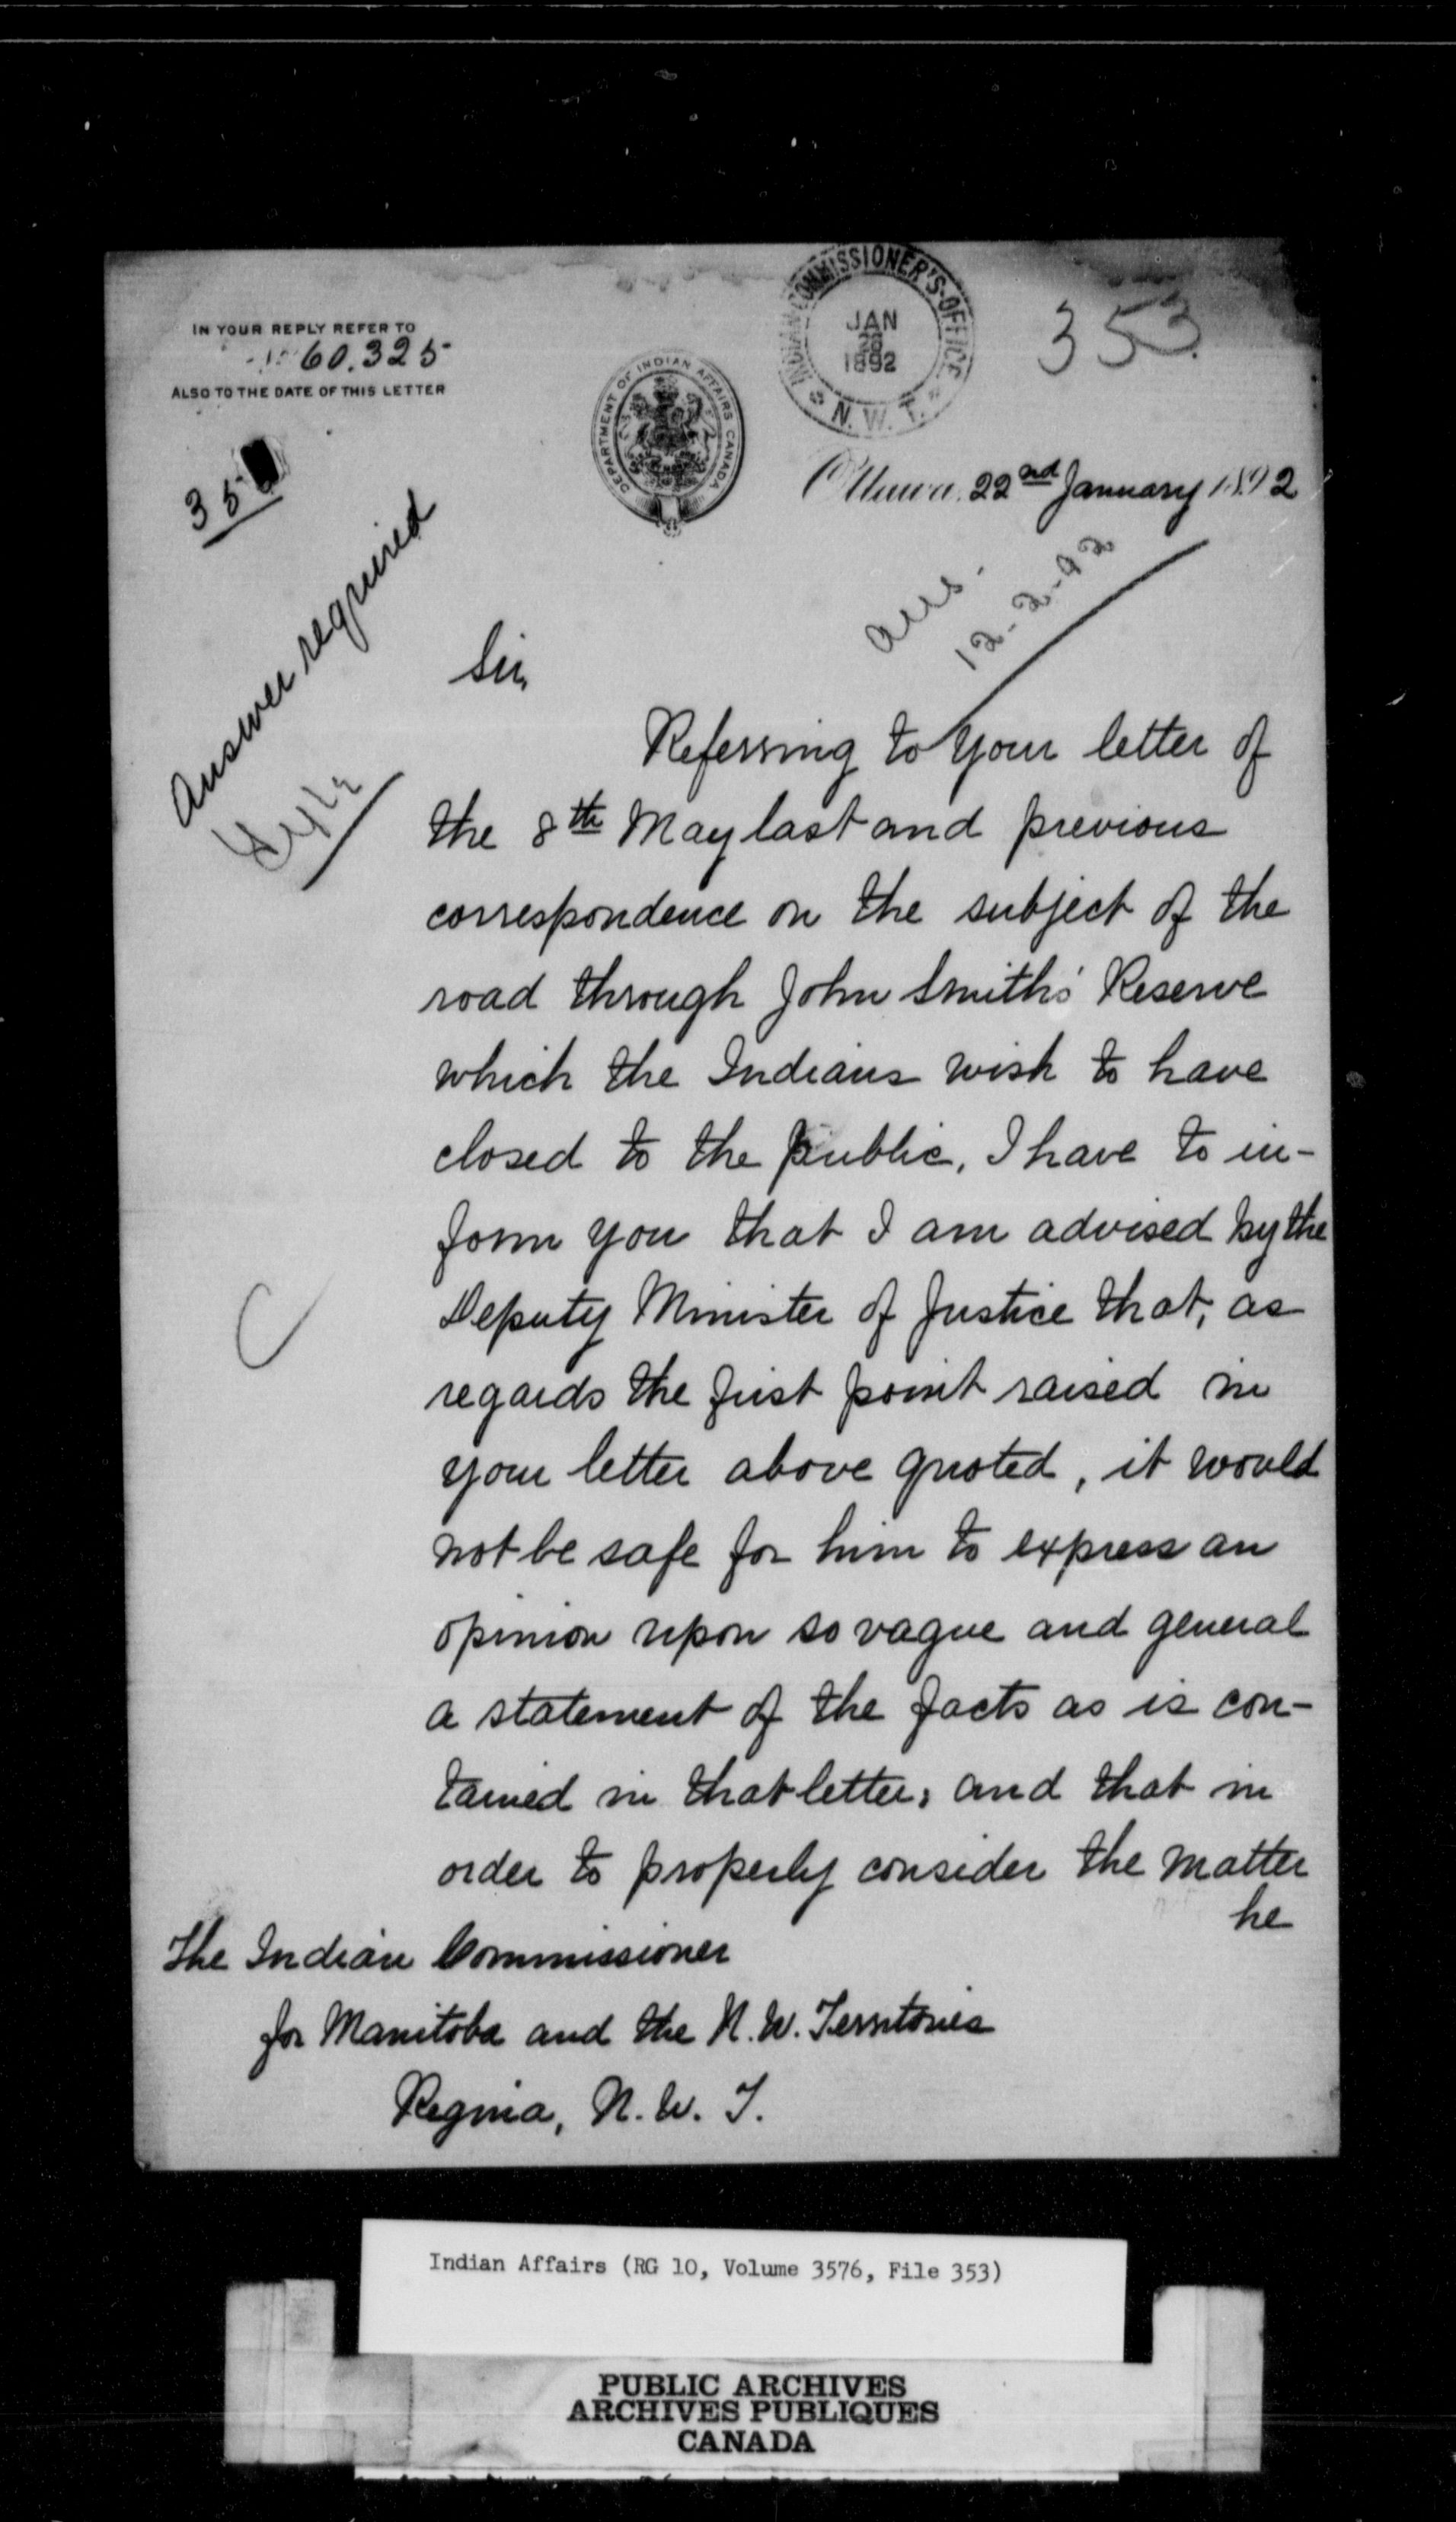 INDIAN COMMISSIONER'S-OFFICE
JAN
28
1892
N. W. T.
353.
IN YOUR REPLY REFER TO
60.325
ALSO TO THE DATE OF THIS LETTER
DEPARTMENT OF INDIAN AFFAIRS CANADA
35
Ottawa, 22nd January 1892
Answer required
ans.
12-2-92
Sir,
Referring to your letter of
the 8th May last and previous
correspondence on the subject of the
road through John Smith's Reserve
which the Indians wish to have
closed to the public, I have to in-
form you that I am advised by the
Deputy Minister of Justice that, as
regards the first point raised in
your letter above quoted, it would
not be safe for him to express an
opinion upon so vague and general
a statement of the facts as is con-
tained in that letter, and that in
order to properly consider the matter
he
The Indian Commissioner
for Manitoba and the N. W. Territories
Regina, N. W. T.
C
Indian Affairs (RG 10, Volume 3576, File 353)
PUBLIC ARCHIVES
ARCHIVES PUBLIQUES
CANADA